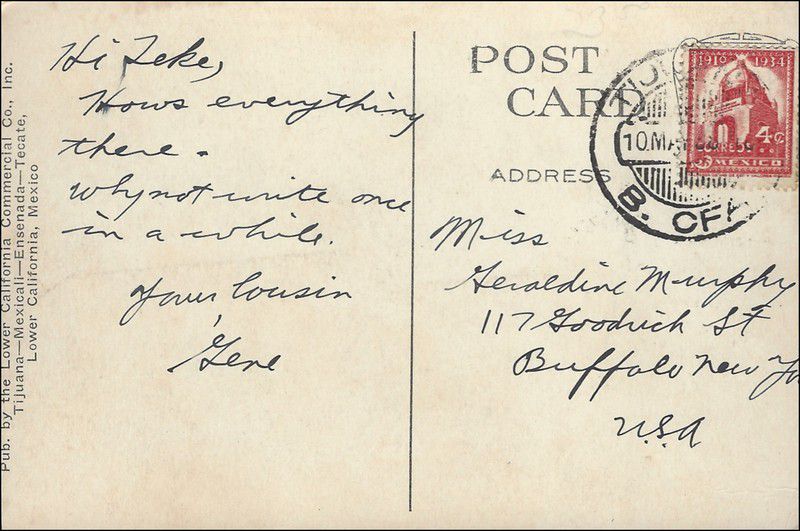 Hi Zeke,
Hows everything
there.
Why not write once
in a while.
Your Cousin
Gene
Pub. by the Lower California Commercial Co., Inc.
Tijuana—Mexicali—Ensenada—Tecate,
Lower California, Mexico
POST
CARD
ADDRESS
1910 1934
4¢
MEXICO
10 MAY
B. CFA
Miss
Geraldine Murphy
117 Goodrich St
Buffalo New Yo
U.S.A